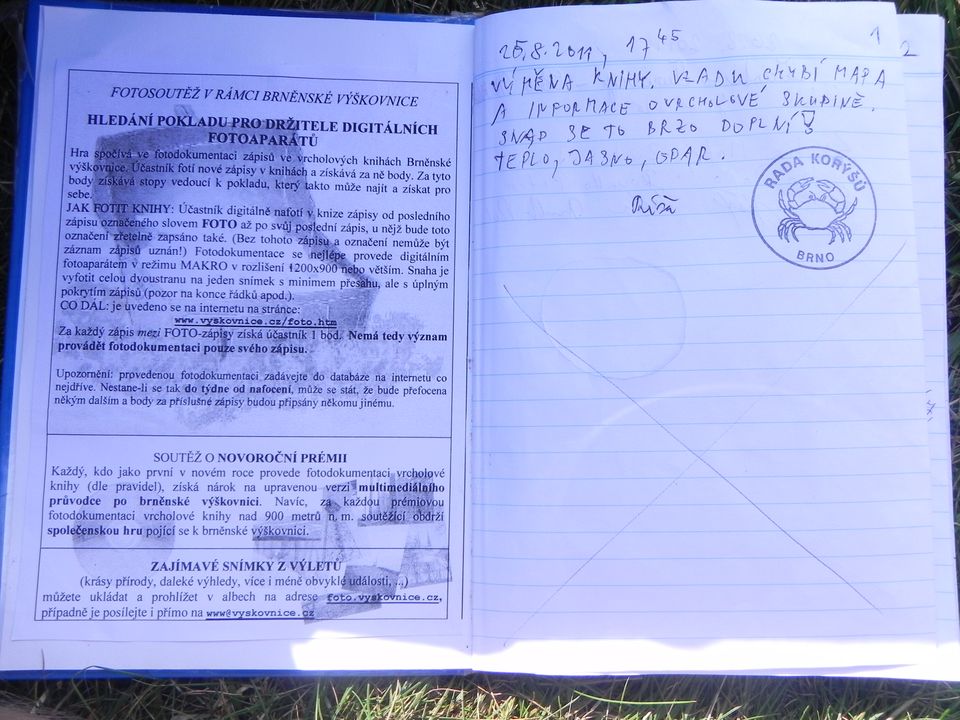 FOTOSOUTĚŽ V RÁMCI BRNĚNSKÉ VÝŠKOVNICE
HLEDÁNÍ POKLADU PRO DRŽITELE DIGITÁLNÍCH
FOTOAPARÁTŮ
Hra spočívá ve fotodokumentaci zápisů ve vrcholových knihách Brněnské
výškovnice. Účastník fotí nové zápisy v knihách a získává za ně body. Za tyto
body získává stopy vedoucí k pokladu, který takto může najít a získat pro
sebe.
JAK FOTIT KNIHY: Účastník digitálně nafotí v knize zápisy od posledního
zápisu označeného slovem FOTO až po svůj poslední zápis, u nějž bude toto
označení zřetelně zapsáno také. (Bez tohoto zápisu a označení nemůže být
záznam zápisů uznán!) Fotodokumentace se nejlépe provede digitálním
fotoaparátem v režimu MAKRO v rozlišení 1200x900 nebo větším. Snaha je
vyfotit celou dvoustranu na jeden snímek s minimem přesahu, ale s úplným
pokrytím zápisů (pozor na konce řádků apod.).
CO DÁL: je uvedeno se na internetu na stránce:
www.vyskovnice.cz/foto.htm
Za každý zápis mezi FOTO-zápisy získá účastník 1 bod. Nemá tedy význam
provádět fotodokumentaci pouze svého zápisu.
Upozornění: provedenou fotodokumentaci zadávejte do databáze na internetu co
nejdříve. Nestane-li se tak do týdne od nafocení, může se stát, že bude přefocena
někým dalším a body za příslušné zápisy budou připsány někomu jinému.
SOUTĚŽ O NOVOROČNÍ PRÉMII
Každý, kdo jako první v novém roce provede fotodokumentaci vrcholové
knihy (dle pravidel), získá nárok na upravenou verzi multimediálního
průvodce po brněnské výškovnici. Navíc, za každou prémiovou
fotodokumentaci vrcholové knihy nad 900 metrů n. m. soutěžící obdrží
společenskou hru pojící se k brněnské výškovnici.
ZAJÍMAVÉ SNÍMKY Z VÝLETŮ
(krásy přírody, daleké výhledy, více i méně obvyklé události, ...)
můžete ukládat a prohlížet v albech na adrese foto.vyskovnice.cz,
případně je posílejte i přímo na www@vyskovnice.cz
1
2
25.8.2011, 17 45
VÝMĚNA KNIHY. VZADU CHYBÍ MAPA
A INFORMACE O VRCHOLOVÉ SKUPINĚ.
SNAD SE TO BRZO DOPLNÍ!
TEPLO, JASNO, OPAR.
RADA KORÝŠŮ
BRNO